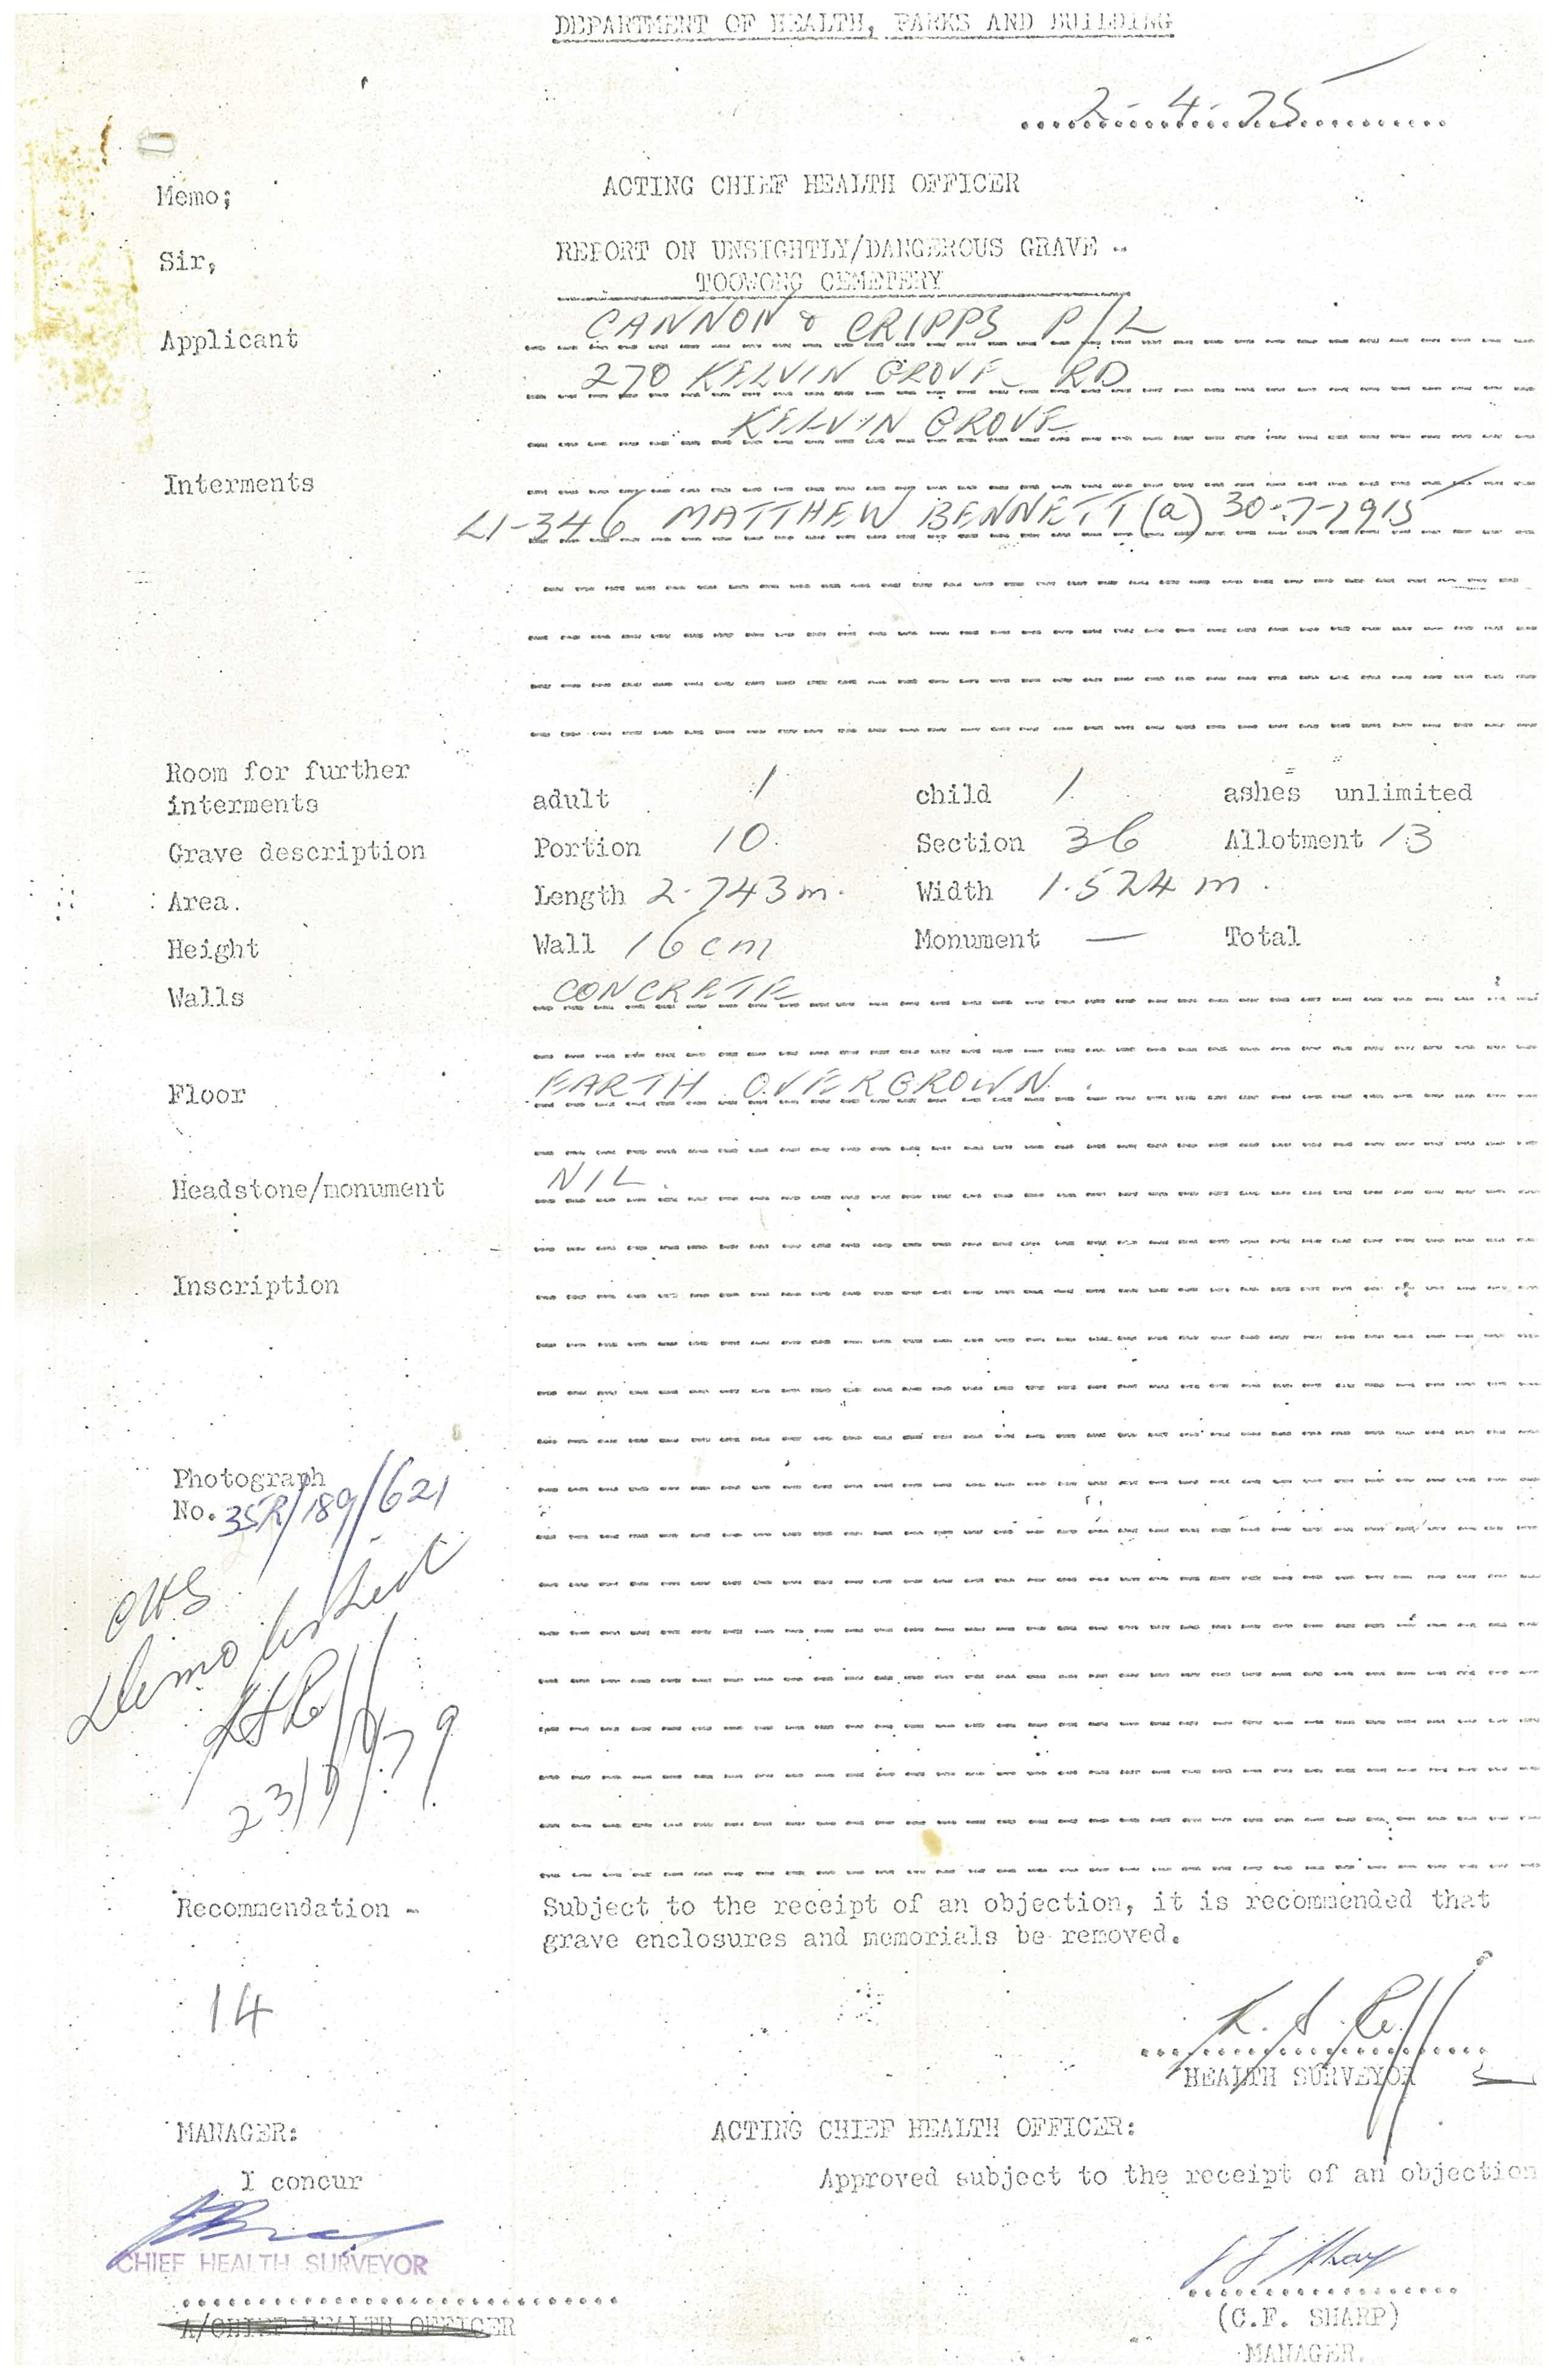 DEPARTMENT OF HEALTH, PARKS AND BUILDING
2-4-75
Memo; ACTING CHIEF HEALTH OFFICER
Sir, REPORT ON UNSIGHTLY/DANGEROUS GRAVE -
TOOWONG CEMETERY
Applicant CANNON & CRIPPS P/L
270 KELVIN GROVE RD
KELVIN GROVE
Interments
L1-346 MATTHEW BENNETT (a) 30-7-1915
Room for further
interments adult 1 child 1 ashes unlimited
Grave description Portion 10 Section 36 Allotment 13
Area. Length 2.743m. Width 1.524m.
Height Wall 16cm Monument — Total
Walls CONCRETE
Floor EARTH OVERGROWN.
Headstone/monument NIL.
Inscription
Photograph
No. 35R/189/621
CHS
Demolished
23/9/79
Recommendation - Subject to the receipt of an objection, it is recommended that
grave enclosures and memorials be removed.
14
HEALTH SURVEYOR
MANAGER: ACTING CHIEF HEALTH OFFICER:
I concur Approved subject to the receipt of an objection
CHIEF HEALTH SURVEYOR
A/CHIEF HEALTH OFFICER
(C.F. SHARP)
MANAGER.